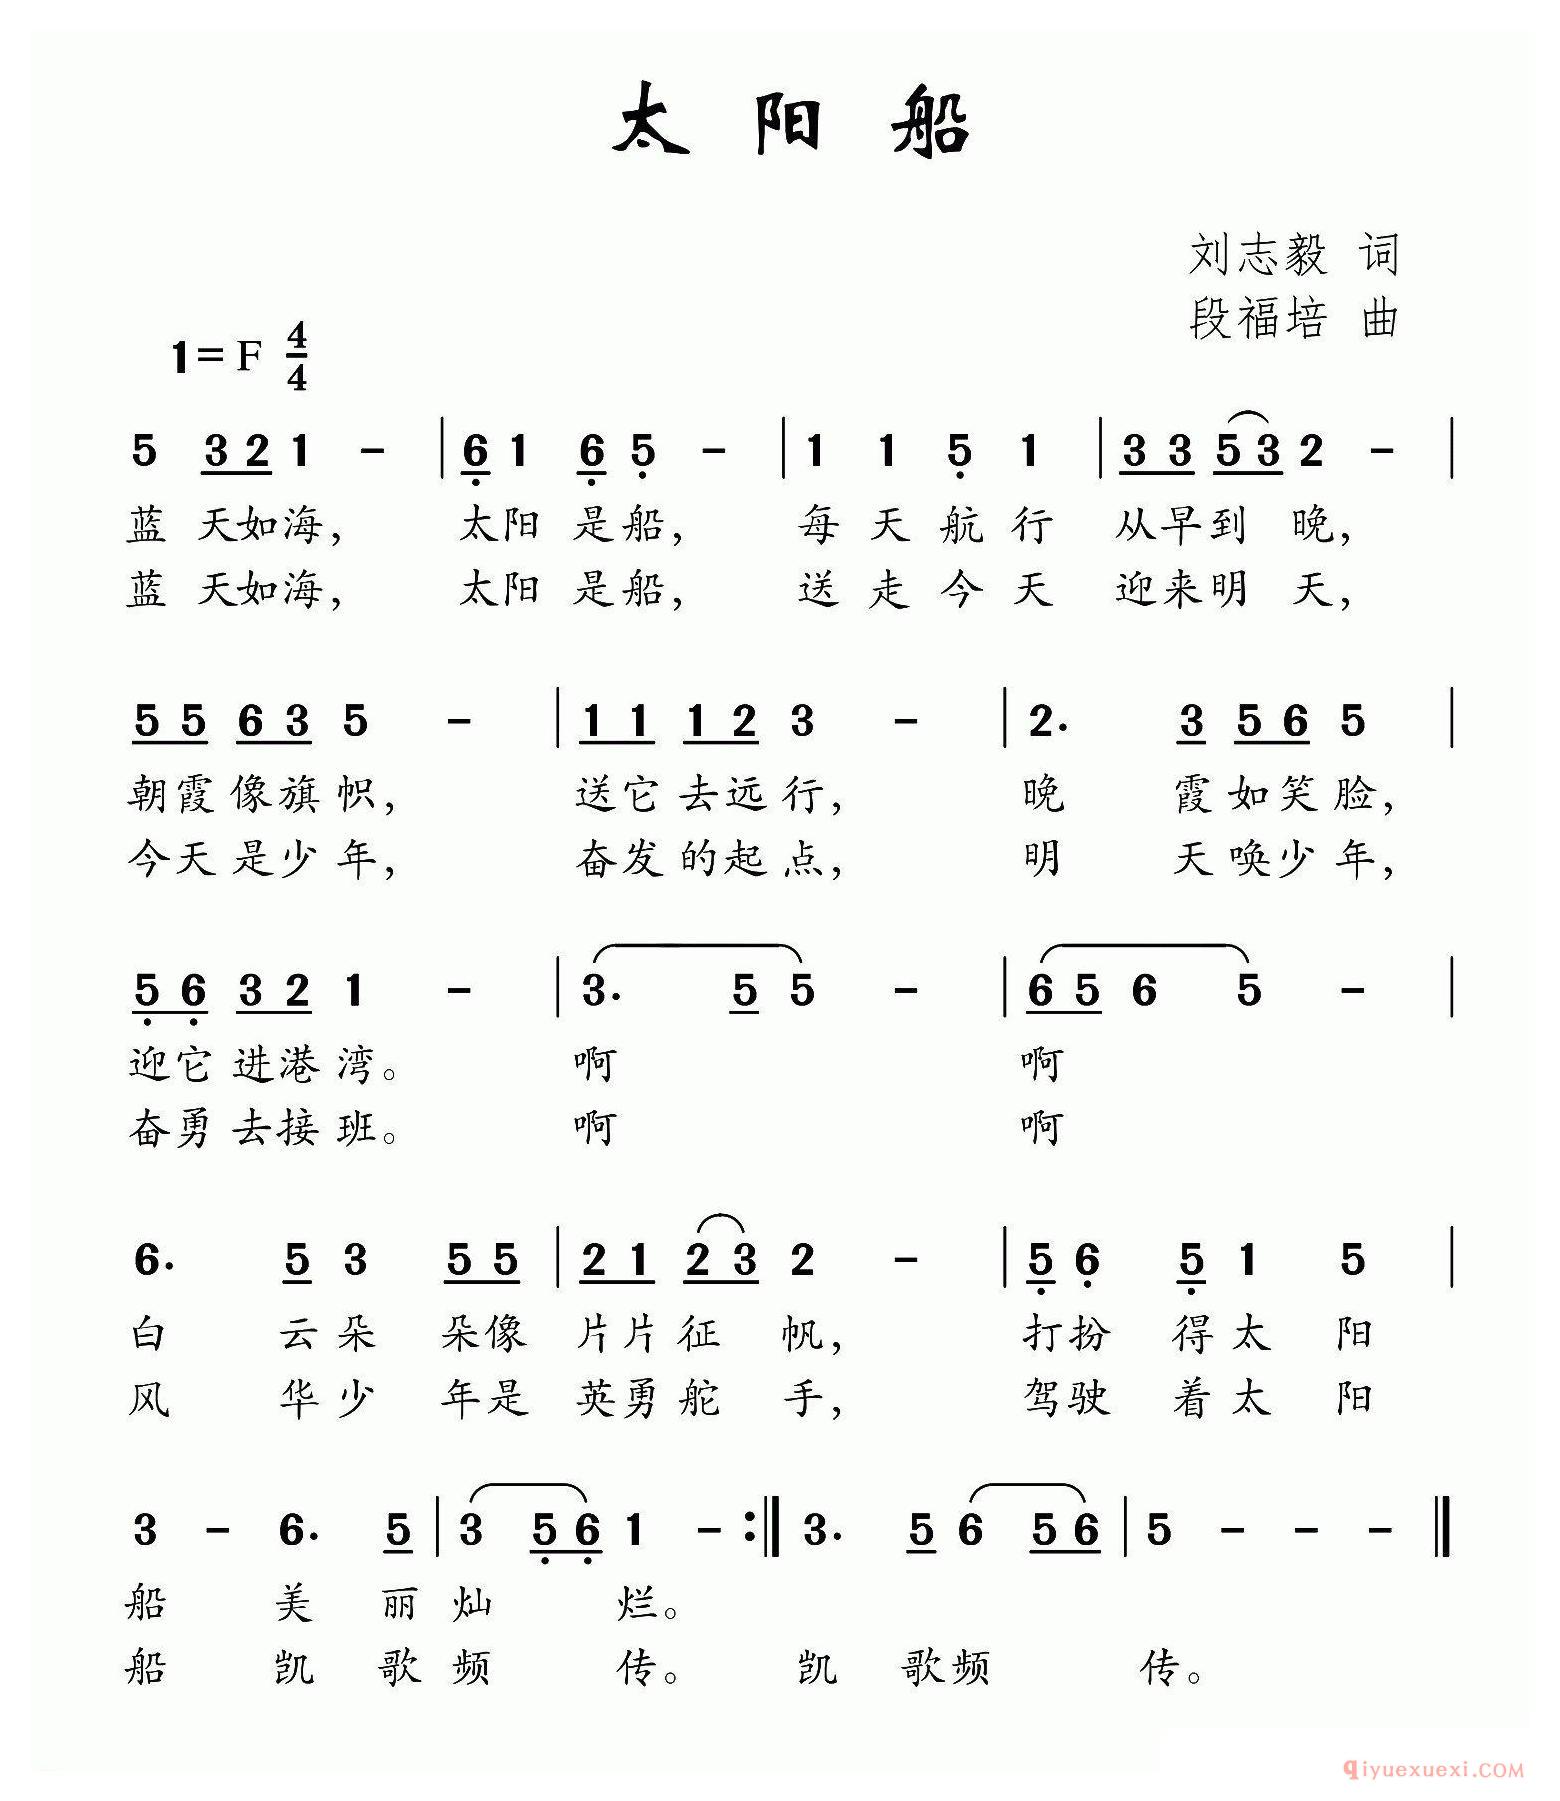 太阳船
刘志毅 词
段福培 曲
1=F 4/4
5 3 2 1 - | 6 1 6 5 - | 1 1 5 1 | 3 3 5 3 2 - |
蓝天如海， 太阳是船， 每天航行 从早到晚，
蓝天如海， 太阳是船， 送走今天 迎来明天，
5 5 6 3 5 - | 1 1 1 2 3 - | 2. 3 5 6 5 |
朝霞像旗帜， 送它去远行， 晚霞如笑脸，
今天是少年， 奋发的起点， 明天唤少年，
5 6 3 2 1 - | 3. 5 5 - | 6 5 6 5 - |
迎它进港湾。 啊 啊
奋勇去接班。 啊 啊
6. 5 3 5 5 | 2 1 2 3 2 - | 5 6 5 1 5 |
白云朵朵像 片片征帆， 打扮得太阳
风华少年是 英勇舵手， 驾驶着太阳
3 - 6. 5 | 3 5 6 1 - :| 3. 5 6 5 6 | 5 - - - ‖
船 美丽灿烂。
船 凯歌频传。 凯歌频传。
qiyuexuexi.COM